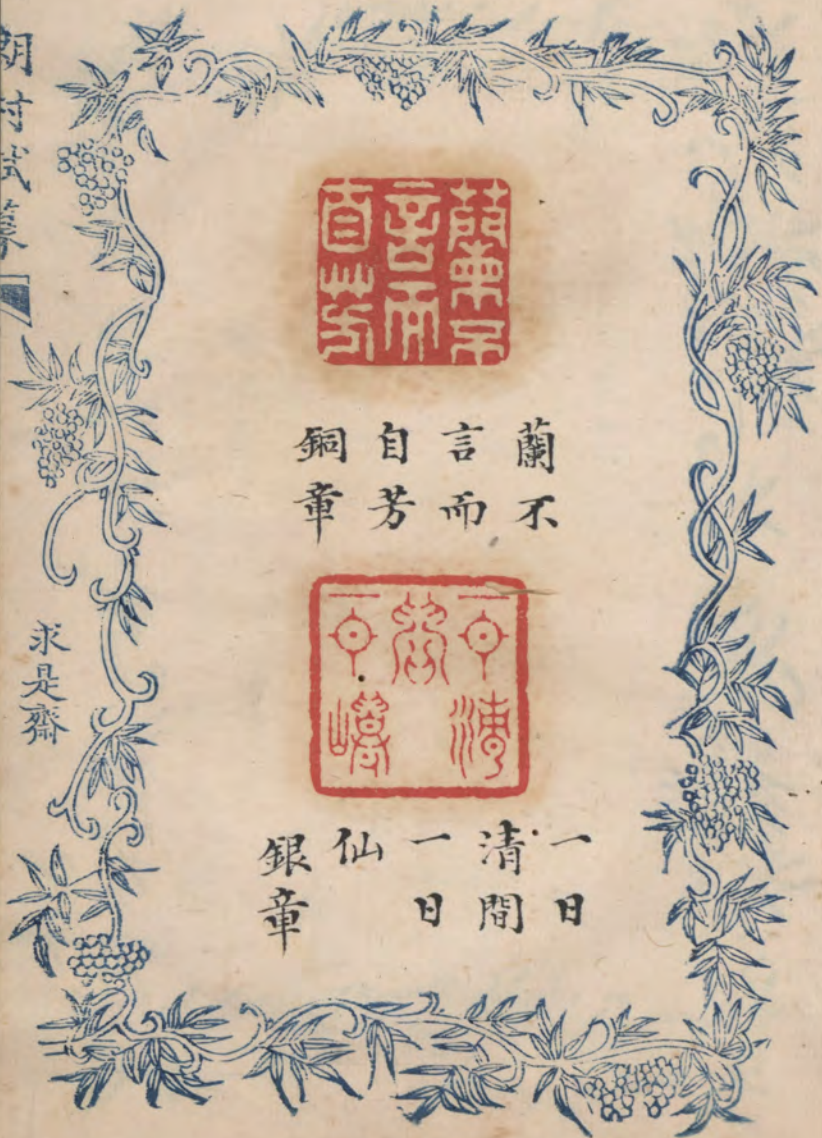 蘭不
言而
自芳
蘭不
言而
自芳
銅章
一日清
一日
一日
清間
一日
仙
銀章
求是齋